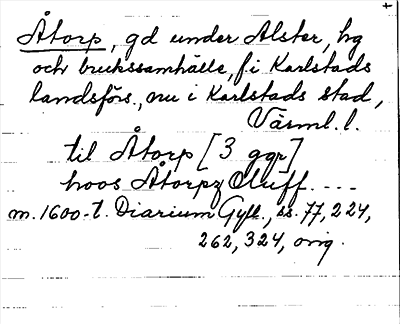 +
Åtorp, gd under Alster, hg
och brukssamhälle, f. i Karlstads
landsförs., nu i Karlstads stad,
Värml. l.
til Åtorp [3 ggr]
hoos Åtorpz Cluff. ---
m. 1600-t. Diarium Gyll., ss. 77, 224,
262, 324, orig.